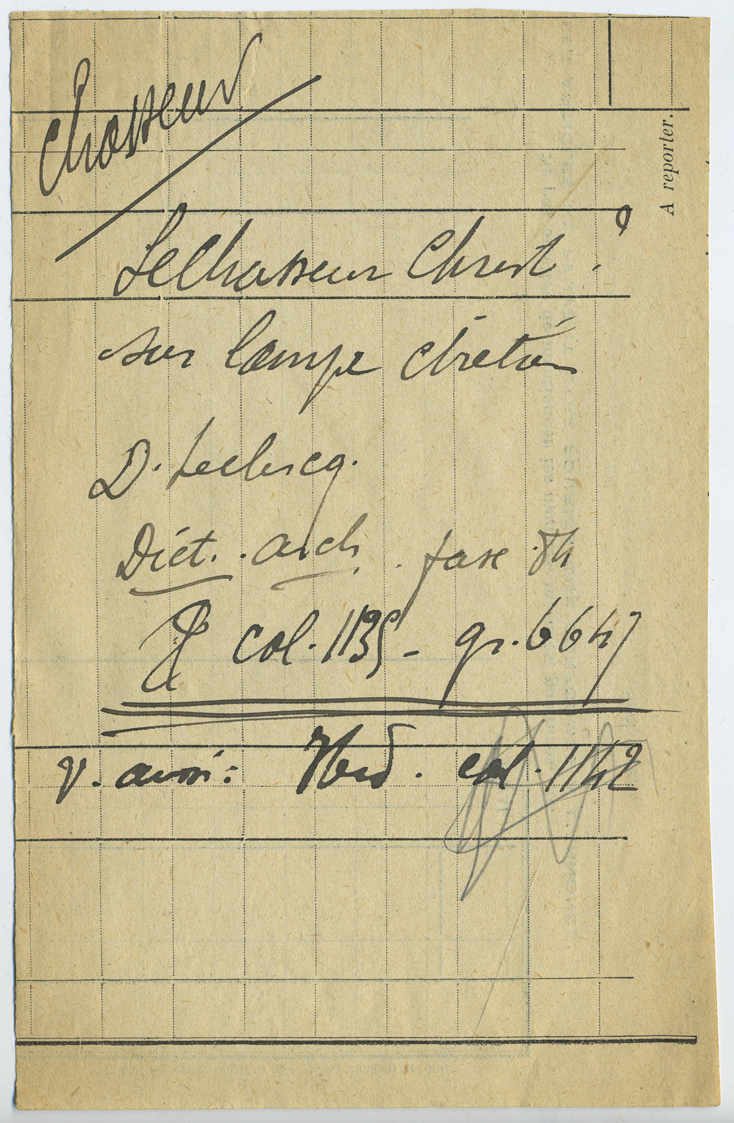 Chasseur
Le Chasseur Christ ?
sur lampe chrétien
D. Leclercq.
Dict. arch. fasc. 84
col. 1135 - gr. 6647
v. aussi : Ibid. col. 1142
A reporter.